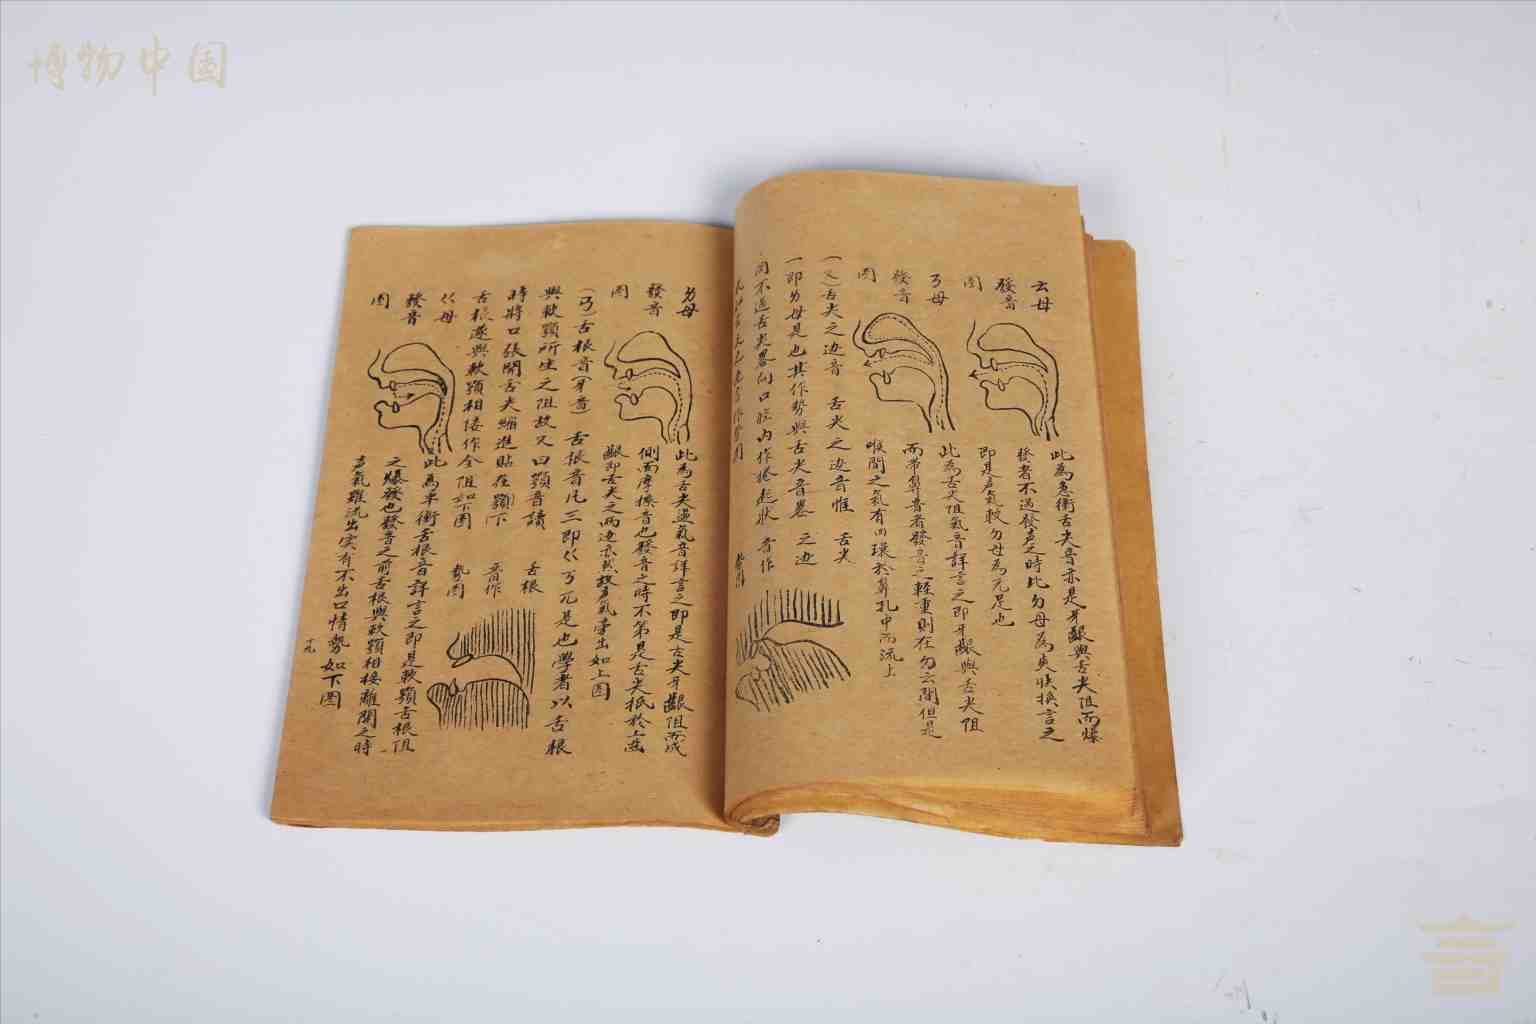 博物中国
ㄊ母
發音
圖
此為急衝舌尖音亦是牙齦與舌尖阻而爆
發者不過發声之時比ㄉ母為爽快換言之
即是声氣較ㄉ母為充足也
ㄋ母
發音
圖
此為舌尖阻氣音詳言之即牙齦與舌尖阻
而帶鼻音者發音之軽重則在ㄉㄊ間但是
喉間之氣有回環於鼻孔中而流上
舌尖之边音 舌尖之边音惟
一即ㄌ母是也其作勢與舌尖音畧
同不过舌尖畧向口腔内作捲起狀
舌尖
之边
音作
勢圖
ㄌ母
發音
圖
此為舌尖邊氣音詳言之即是舌尖牙齦阻而成
側面摩擦音也發音之時不第是舌尖抵於上齒
齦即舌尖之兩边亦然故声氣旁出如上圖
舌根音(牙音) 舌根音凡三即ㄍㄎㄫ是也學者以舌根
與軟顎所生之阻故又曰顎音讀
時將口張開舌尖綳進貼在顎下
舌根遂與軟顎相倭作全阻如下圖
舌根
音作
勢圖
ㄍ母
發音
圖
此為单衝舌根音詳言之即是軟顎舌根阻
之爆發也發音之前舌根與軟顎相接離開之時
声氣雖流出实有不出口情勢如下圖
十九